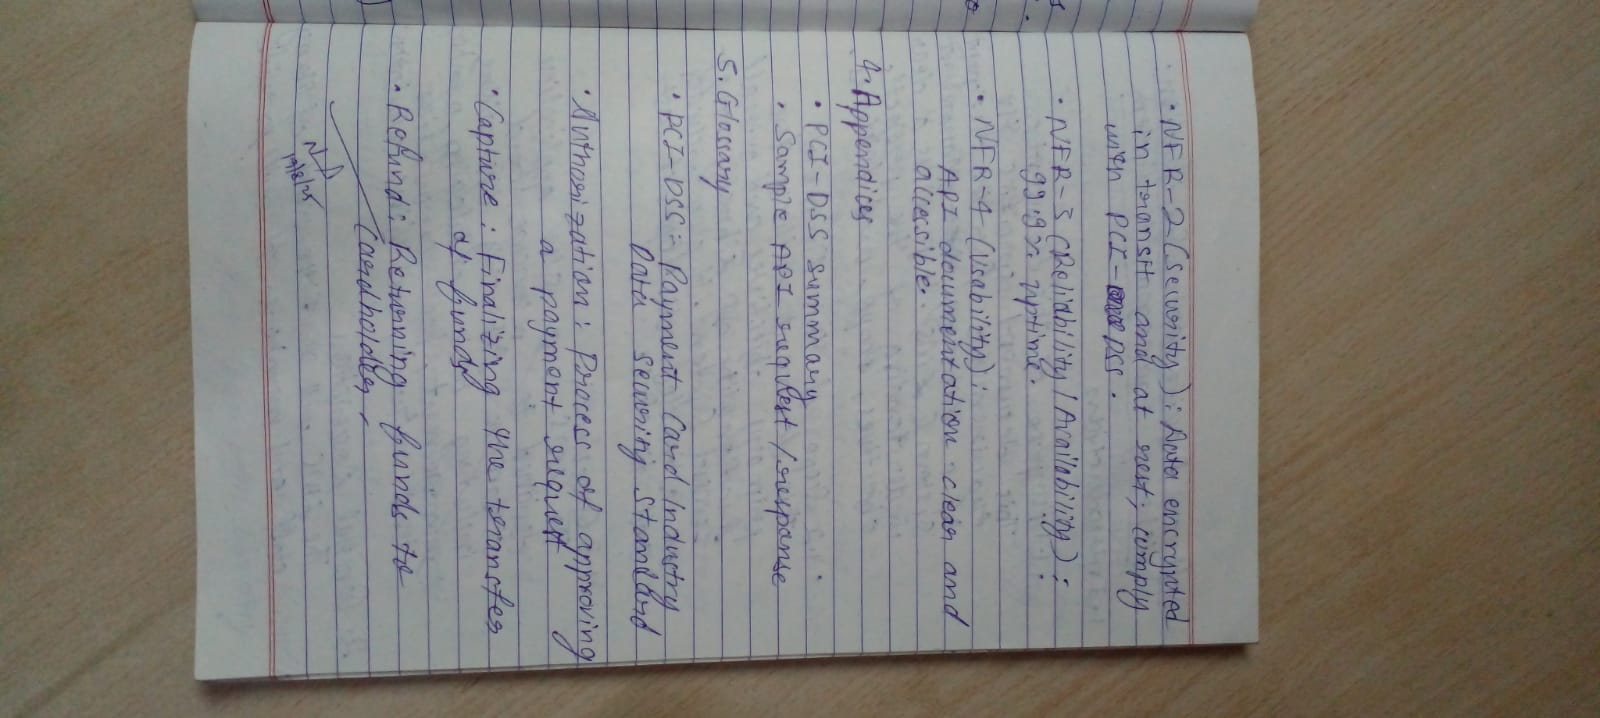 • NFR-2 (security): Data encrypted
in transit and at rest; comply
with PCI-DSS.
• NFR-3 (Reliability/Availability):
99.9% uptime.
• NFR-4 (Usability):
API documentation clear and
accessible.
4. Appendices
• PCI-DSS summary
• Sample API request/response
5. Glossary
• PCI-DSS: Payment Card Industry
Data security standard
• Authorization: Process of approving
a payment request
• Capture: Finalizing the transfer
of funds
• Refund: Returning funds to
Cardholder